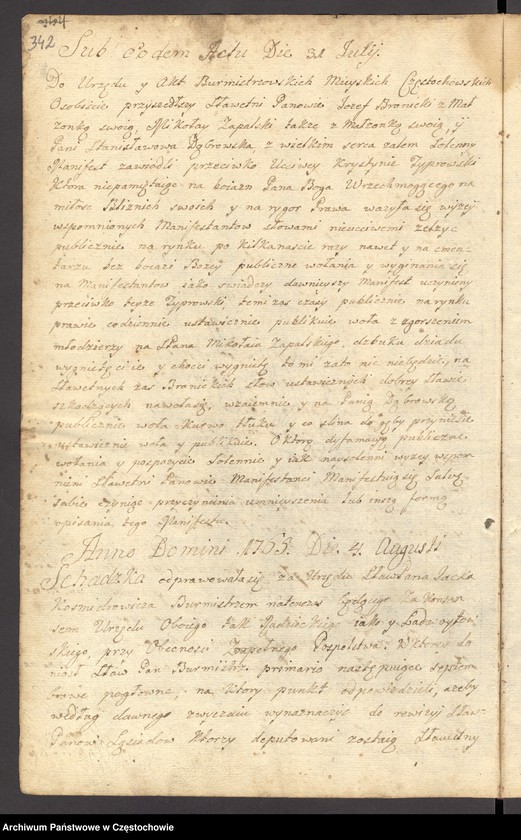 342
Sub eodem Actu Die 31 Julij.
Do Urzędu y Akt Burmistrzowskich Mieyskich Częstochowskich
Osobiscie przyszedłszy Sławetni Panowie Jozef Bronicki z Mał
zonką swoią, Mikołay Zapalski takze z Małzonką swoią, y
Pani Stanisławowa Dąbrowska, z wielkim serca zalem Solenny
Manifest zawiedli przeciwko Uczciwey Krystynie Zyprowski
Ktora niepamiętaiąc na boiazn Pana Boga Wszechmogącego na
miłosc Bliznich swoich y na rygor Prawa wazyła się wyzey
wspomnionych Manifestantow słowami nieuczciwemi zelzyc
publicznie na rynku po kilkanascie razy nawet y na cmen
tarzu bez boiazni Bozey publiczne wołania y wyginania się
na Manifestantow iako swiadczy dawnieyszy Manifest uczyniony
przeciwko teyze Zyprowski temi zas czasy publicznie na rynku
prawie codziennie ustawicznie publikuie woła z zgorszeniem
młodzierzy na Pana Mikołaia Zapalskiego,
na
Sławetnych zas Bronickich słow ustawicznych dobrey sławie
szkodzących nawołasię, wzaiemnie y na Panią Dąbrowską
publicznie woła Kurwo y co slina do gęby przyniesie
ustawicznie woła y publikuie. O ktorą dyfamacyą publiczne
wołania y pospozycie Solennie y iak naysolenni wyzey wspom
nieni Sławetni Panowie Manifestanci Manifestuią się Salvę
sobie czyniąc przyczynienia umnieyszenia lub inszą formą
opisania tego Manifestu.
Anno Domini 1753. Die 4. Augusti
Schadzka odprawowała się za Urzędu Sław Pana Jacka
Kosmidrowicza Burmistrzem natenczas będącego Za Konsen
sem Urzędu Oboiego tak Radzieckiego iako y Ładwoytow
skiego, przy Obecnosci Zupełnego Pospolstwa: Ktoremu do
niosł Sław Pan Burmistrz. primario następuiące septem
browe pogłowne, na ktory punkt odpowiedzieli, azeby
według dawnego zwyczaiu wyznaczyc do rewizyi Sław
Panow Sąsiadow Ktorzy deputowani zostaią Sławetny
Archiwum Państwowe w Częstochowie